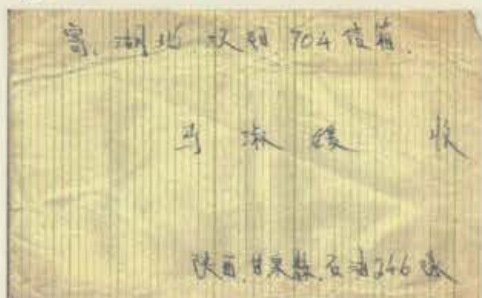 寄.湖北 汉阳 704信箱.
马 淑 媛 收
陕西.甘泉县.石油246